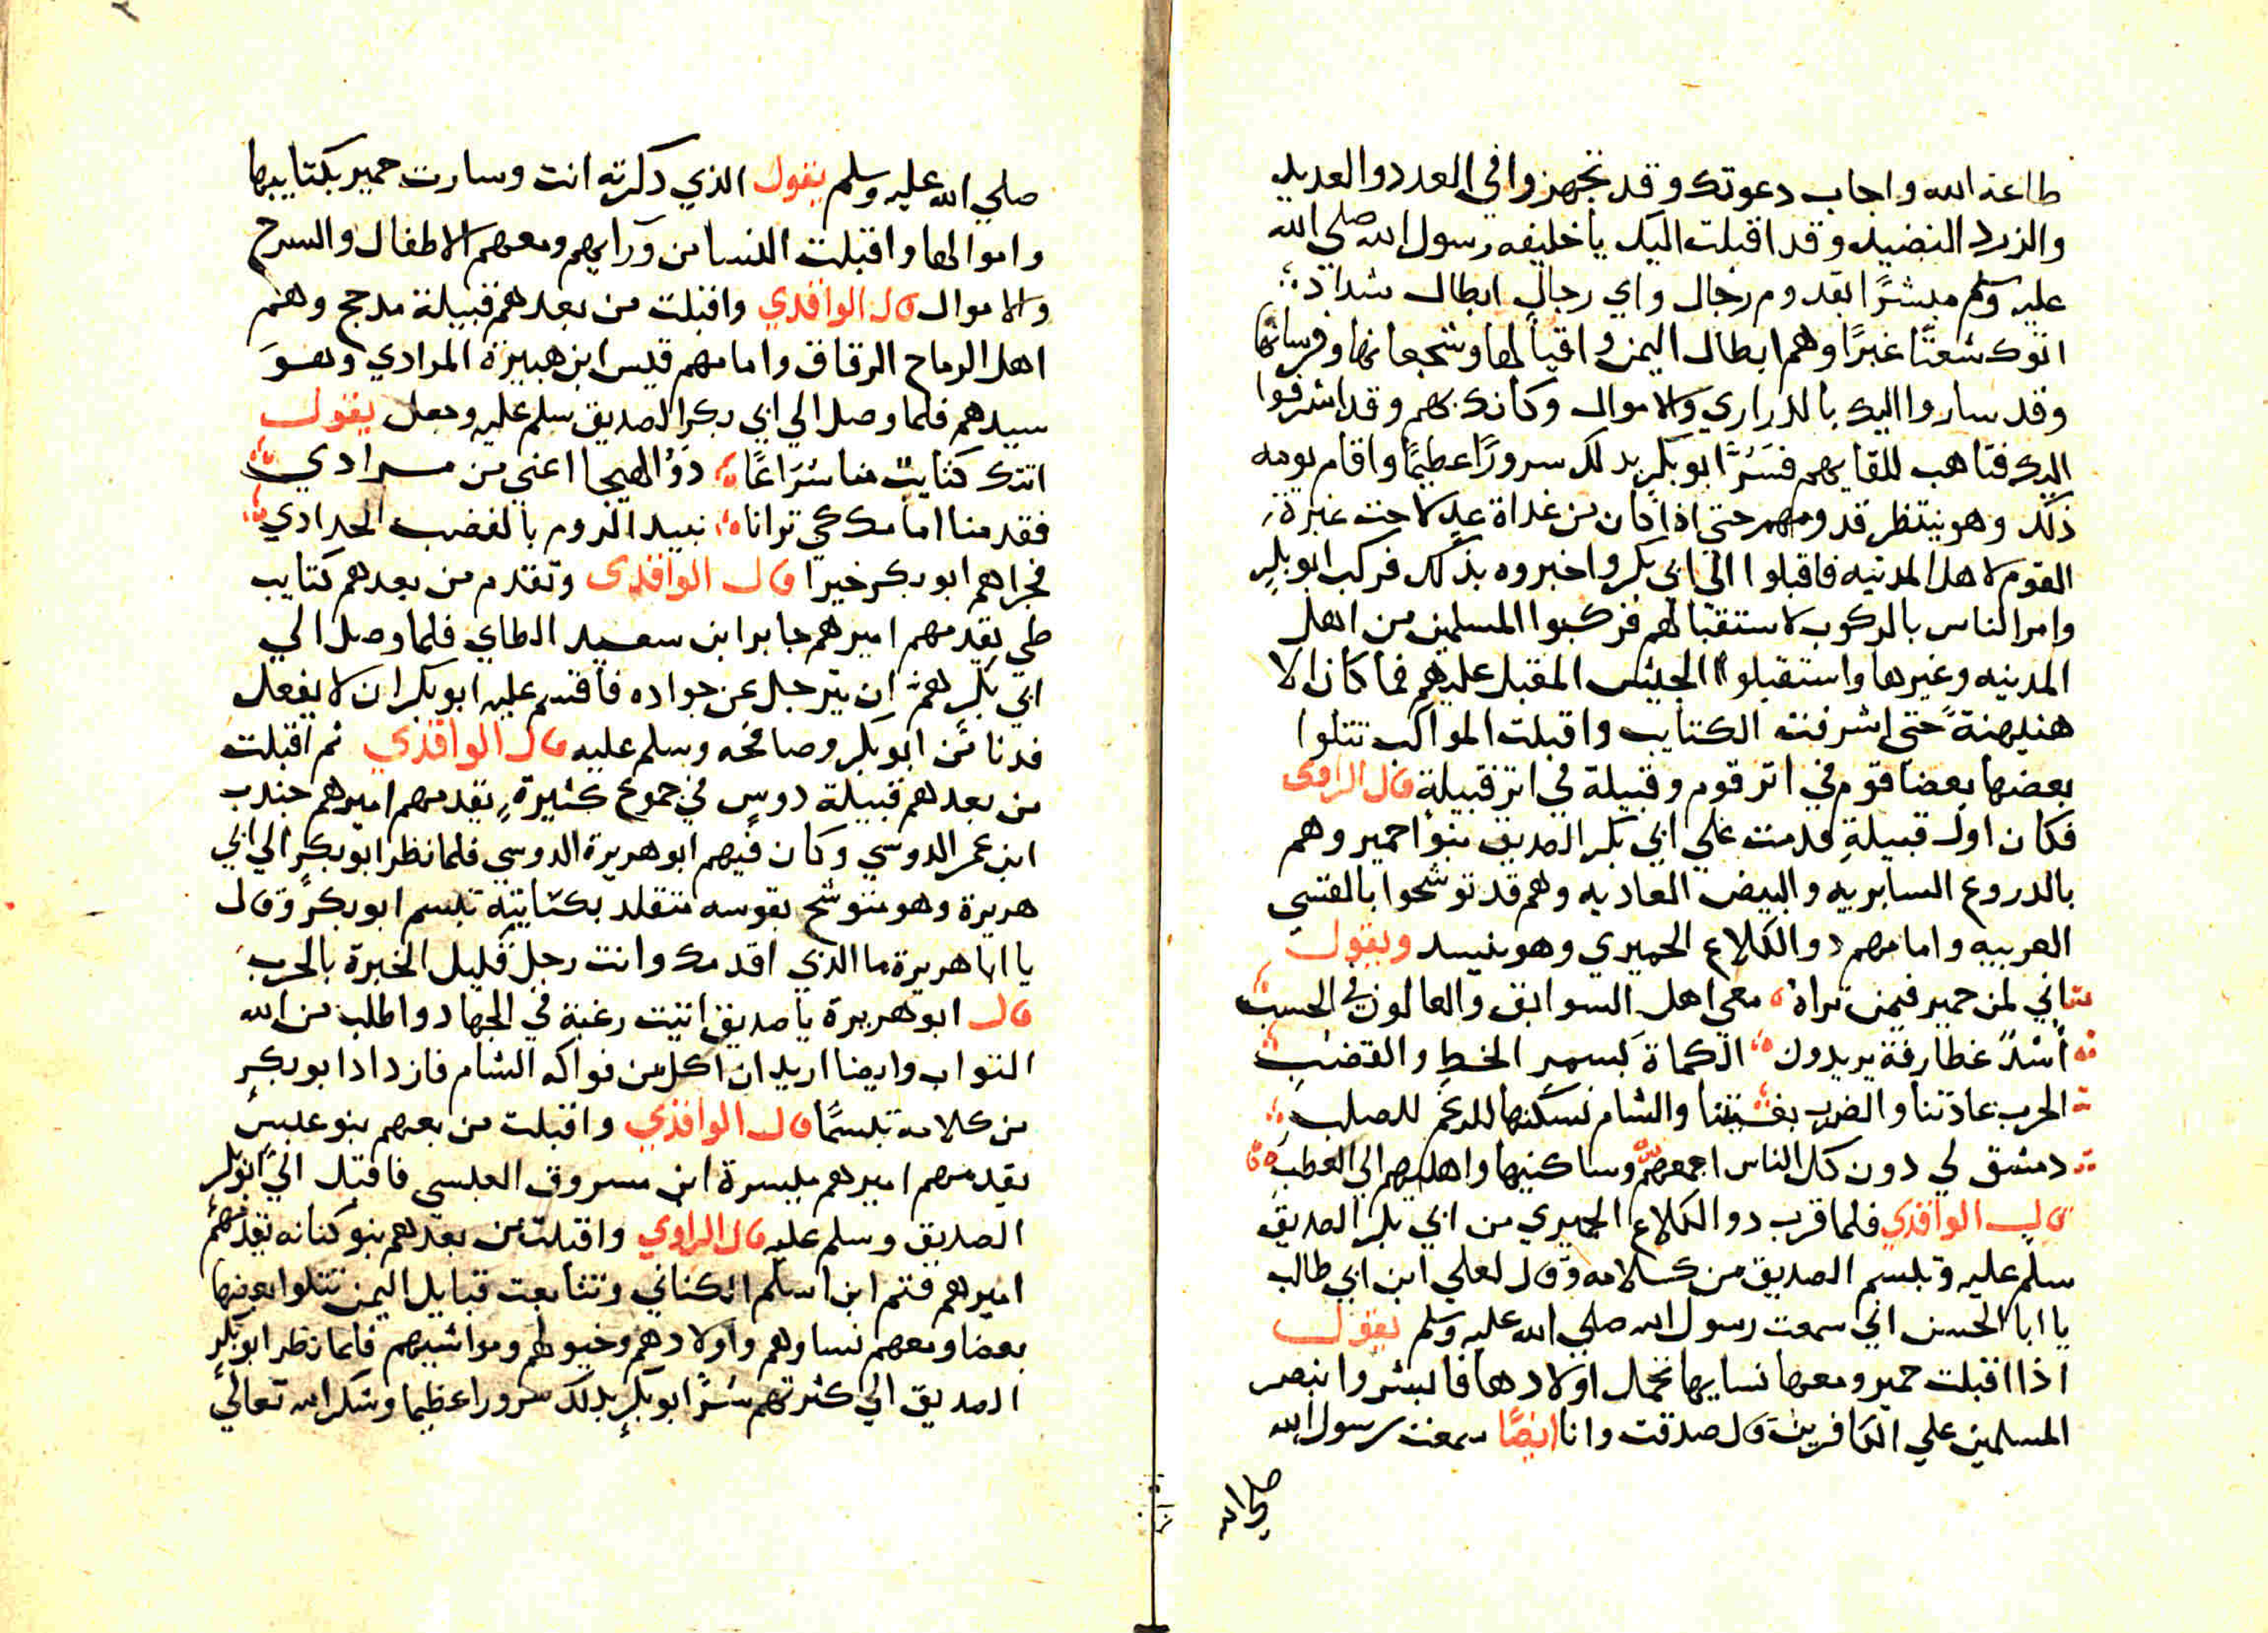 طاعة الله واجاب دعوتك وقد تجهزوا في العدد والعديد
والزرد النضيد وقد اقبلت اليك ياخليفه رسول الله صلي الله
عليه وسلم مبشرًا بقدوم رجال واي رجال ابطال شداد
اتوك شعثًا غبرًا وهم ابطال اليمن واقيالها وشجعانها وفرسانها
وقد ساروا اليك بالدراري والاموال وكانك بهم وقد اشرفوا
اليك فتاهب للقايهم فسر ابو بكر بدلك سرورًا عظيمًا واقام يومه
ذلك وهو ينتظر قدومهم حتي اذا كان من غداة غدٍ لاحت غبرة
القوم لاهل المدينه فاقبلوا الي ابي بكر واخبروه بذلك فركب ابو بكر
وامر الناس بالركوب لاستقبالهم فركبوا المسلمين من اهل
المدينه وغيرها واستقبلوا الجيش المقبل عليهم فما كان الا
هنيهنة حتي اشرفت الكتايب واقبلت المواكب تتلوا
بعضها بعضا قوم في اثر قوم وقبيلة في اثر قبيلة قال الراوى
فكان اول قبيلةٍ قدمت علي ابي بكر الصديق بنوا حمير وهم
بالدروع السابريه والبيض العاديه وهم قد توشحوا بالقسي
العربيه وامامهم دو الكلاع الحميري وهو ينشد ويقول
اني لمن حمير فيمن تراه معي اهل السوابق والعالون في الحسب
أسدٌ غطارفة يريدون الكماة بسمر الخط والقضب
الحرب عادتنا والضرب والشام نسكنها للرغم للصلب
دمشق لي دون كل الناس اجمعهم وساكنيها واهليهم الي العطب
قال الواقدي فلما قرب دو الكلاع الحميري من ابي بكر الصديق
سلم عليه وتبسم الصديق من كلامه وقال لعلي ابن ابي طالب
يا ابا الحسن اني سمعت رسول الله صلي الله عليه وسلم يقول
اذا اقبلت حمير ومعها نسايها تحمل اولادها فابشروا بنصر
المسلمين علي الكافرين قال صدقت وانا ايضًا سمعت رسول الله
صلي الله
صلي الله عليه وسلم يقول الذي دكرته انت وسارت حمير بكتاييبها
واموالها واقبلت النسا من ورايهم ومعهم الاطفال والسرح
والاموال قال الواقدي واقبلت من بعدهم قبيلة مدحج وهم
اهل الرماح الرقاق وامامهم قيس ابن هبيرة المرادي وهو
سيدهم فلما وصل الي ابي بكر الصديق سلم عليه وجعل يقول
اتتك كتايب منا سراعًا دوُ الهيجا اعني من مرادي
فقدمنا امامك كي ترانا نبيد الروم بالغضب الحدادي
فجزاهم ابو بكر خيرا قال الواقدى وتقدم من بعدهم كتايب
طي يقدمهم اميرهم جابر ابن سعيد الطاي فلما وصل الي
ابي بكر همّ ان يترجل عن جواده فاقسم عليه ابو بكر ان لا يفعل
فدنا من ابو بكر وصافحه وسلم عليه قال الواقدي ثم اقبلت
من بعدهم قبيلة دوسٍ في جموعٍ كثيرةٍ يقدمهم اميرهم جندب
ابن عمر الدوسي وكان فيهم ابو هريرة الدوسي فلما نظر ابو بكر الي ابي
هريرة وهو متوشح بقوسه متقلد بكنانيته تبسم ابو بكر وقال
يا ابا هريرة ما الذي اقدمك وانت رجل قليل الخبرة بالحرب
قال ابو هريرة ياصديق اتيت رغبة في الجهاد واطلب من الله
الثواب وايضا اريد ان اكل من فواكه الشام فازداد ابو بكر
من كلامه تبسمًا قال الواقدي واقبلت من بعهم بنو عبس
يقدمهم اميرهم ميسرة ابن مسروق العبسي فاقبل الي ابو بكر
الصديق وسلم عليه قال الراوي واقبلت من بعدهم بنو كنانه يقدمهم
اميرهم قثم ابن اسلم الكناني وتتابعت قبايل اليمن تتلوا بعضها
بعضا ومعهم نساوهم واولادهم وخيولهم ومواشيهم فلما نظر ابو بكر
الصديق الي كثرتهم سرّ ابو بكر بدلك سرورا عظيما وشكر الله تعالي